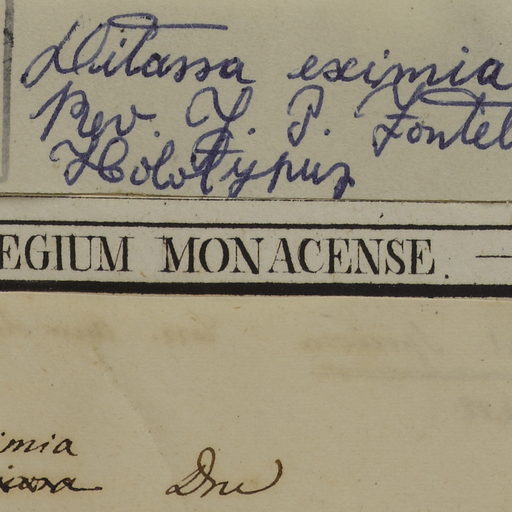 Ditassa eximia
Rev. J. P. Fontel
Holotypus
EGIUM MONACENSE.
imia
Dne